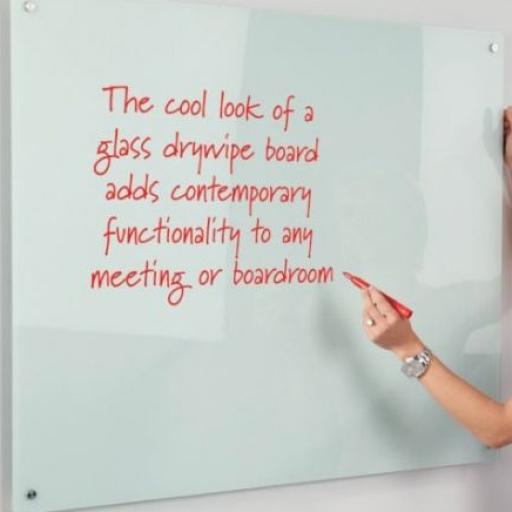 The cool look of a
glass drywipe board
adds contemporary
functionality to any
meeting or boardroom